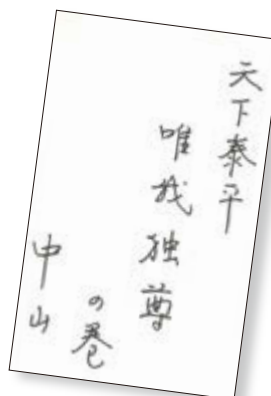 天下泰平
唯我独尊
の巻
中山